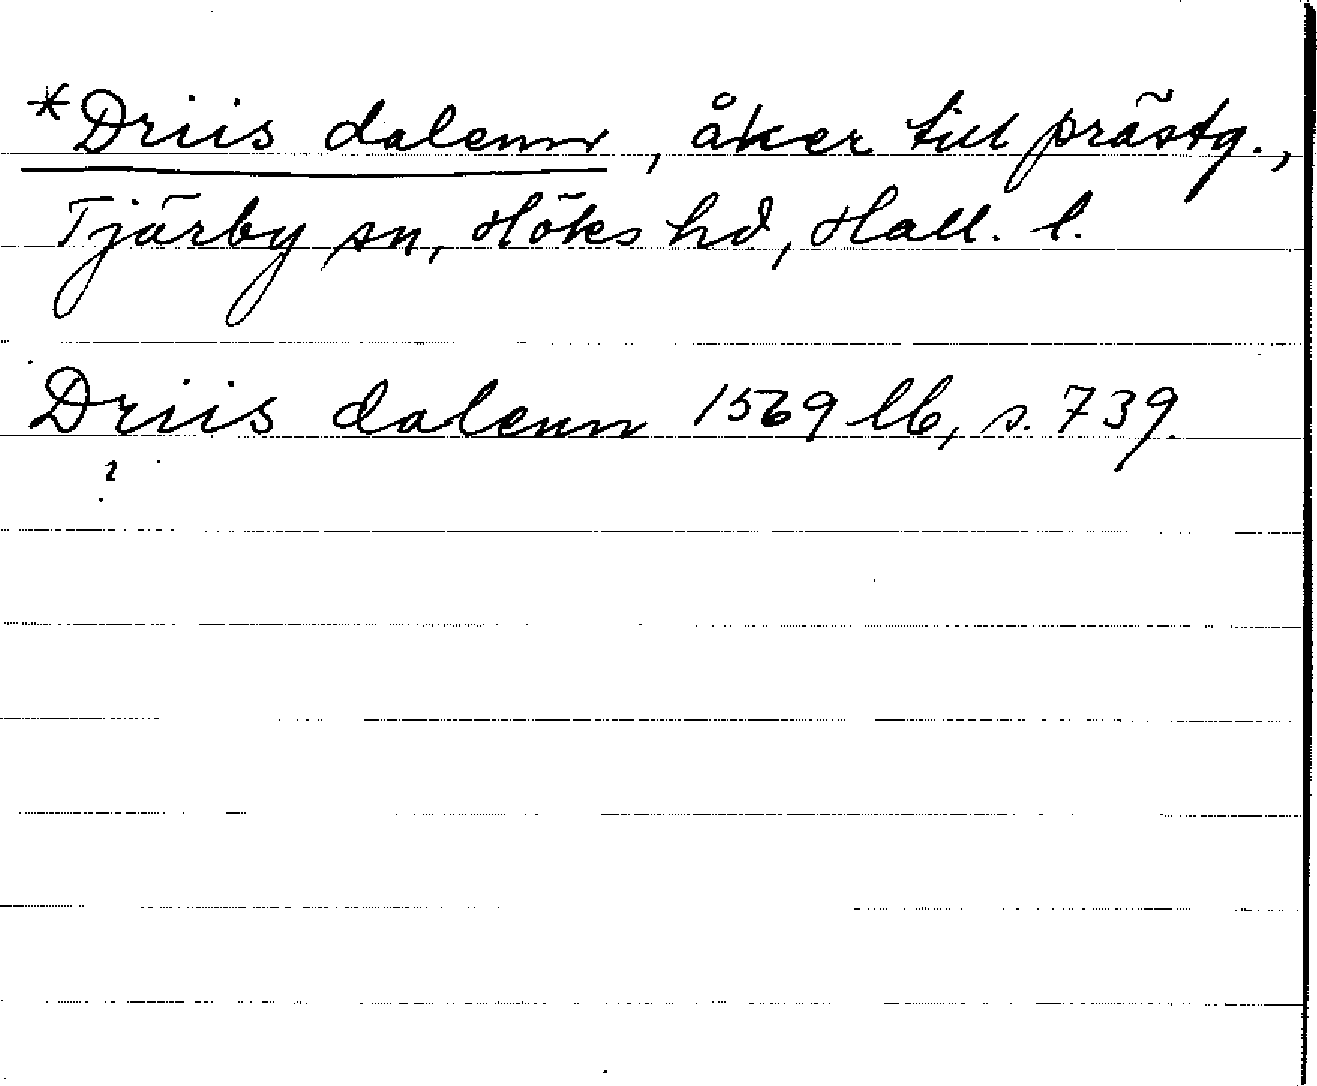 *Driis dalenn, åker till prästg.,
Tjärby sn, Höks hd, Hall. l.
Driis dalenn 1569 lb, s. 739.
?